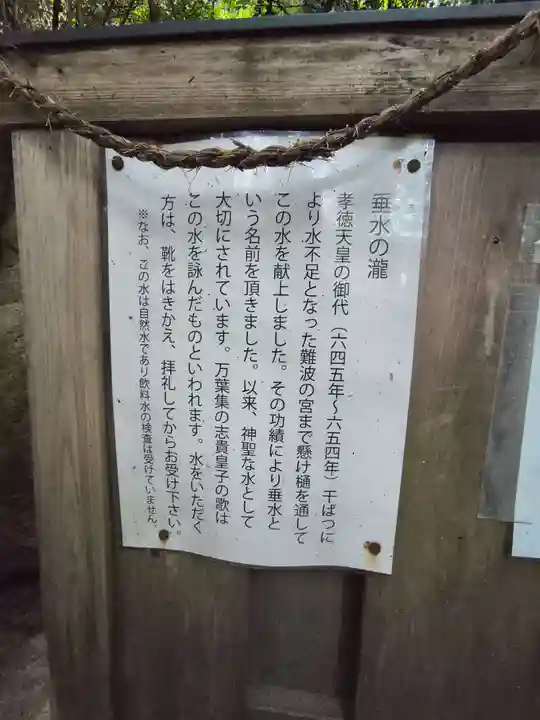 垂水の瀧
孝徳天皇の御代（六四五年～六五四年）干ばつに
より水不足となった難波の宮まで懸け樋を通して
この水を献上しました。その功績により垂水と
いう名前を頂きました。以来、神聖な水として
大切にされています。万葉集の志貴皇子の歌は
この水を詠んだものといわれます。水をいただく
方は、靴をはきかえ、拝礼してからお受け下さい。
※なお、この水は自然水であり飲料水の検査は受けていません。